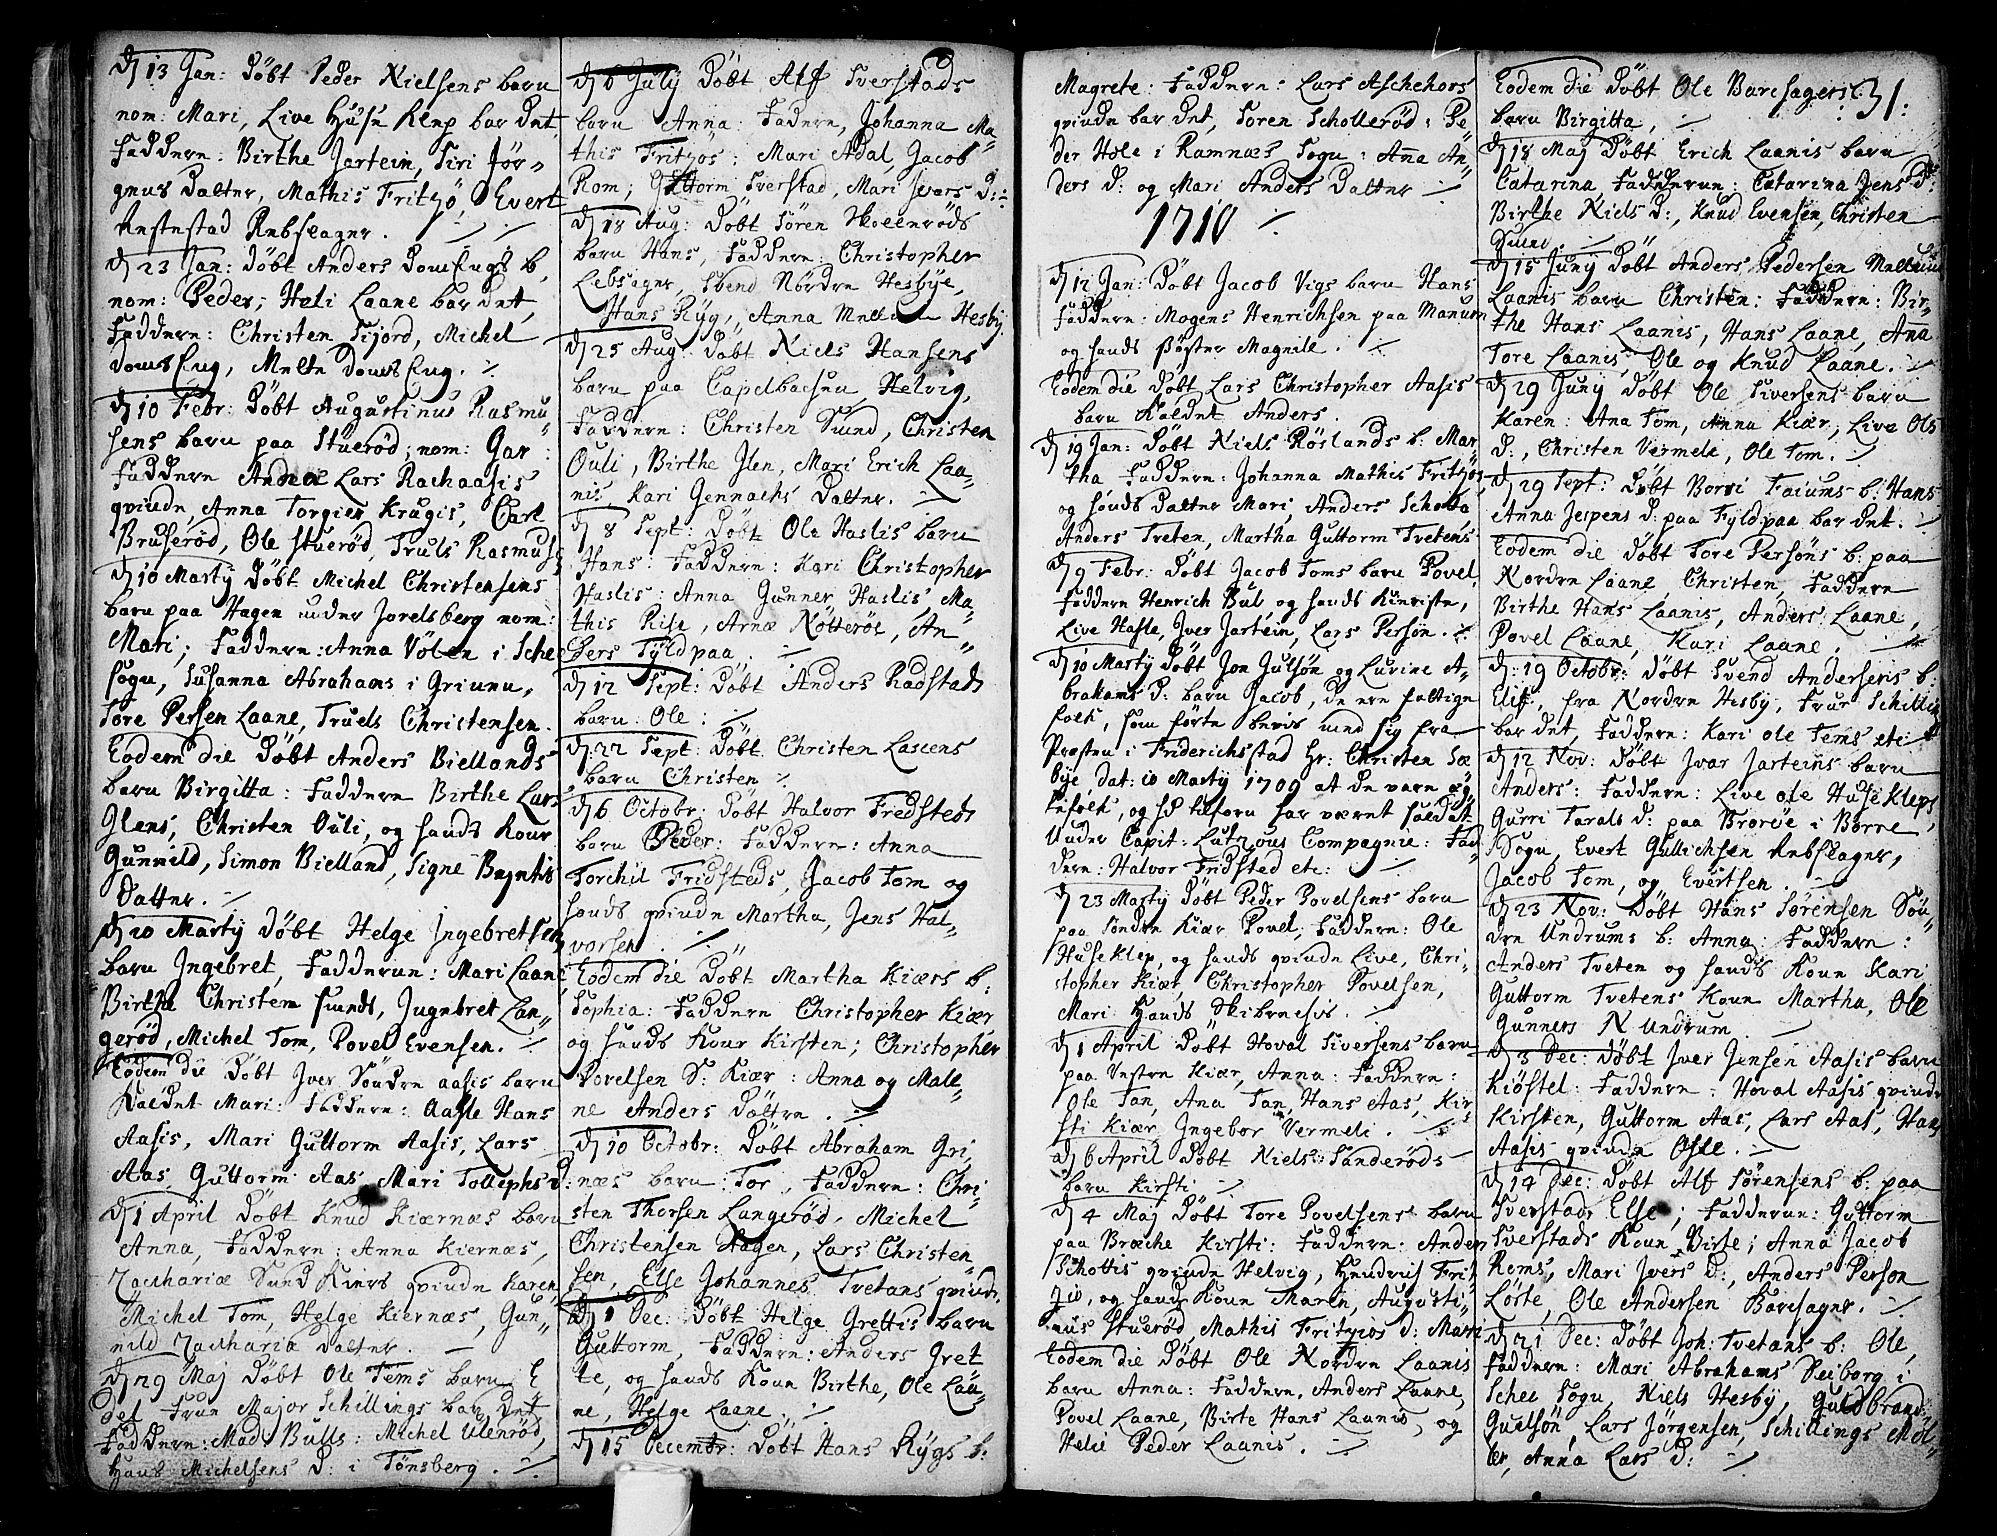 d 13 Jan: Döbt Peder Nielsens barn
nom: Mari, Live Huse Klep bar det
Faddern: Birthe Jartein, Siri Jör-
gens Datter, Mathis Fritzö, Evert
Rebslager.
d 23 Jan: Döbt Anders b.
nom: Peder; Heli Laane bar det,
Faddern: Christen Michel
Mette
d 10 Febr: Döbt Augustinus Rasmu-
sens barn paa Stuerød; nom:
Faddern Lars
qvinde, Anna Torgier Krugis, Carl
Bruserød, Ole Stuerød, Truls Rasmus
d 10 Martÿ Döbt Michel Christensens
barn paa Hagen under Jarelsberg nom:
Mari; Faddern: Anna Völen i Sche
sogn, Susanna Abrahams i Griunn,
Tore Persen Laane, Truels Christensen.
Eodem die Döbt Anders Biellands
barn Birgitta: Faddern Birthe Lars
Ilens, Christen Ouli, og hands Kone
Gunnild, Simon Bielland, Signe
Datter.
d 20 Martÿ Döbt Helge Ingebretsen
barn Ingebret, Faddern: Mari Laane
Birthe Christem Sunds, Ingebret Lan-
gerød, Michel Tom, Povel Evensen.
Eodem die Döbt Iver Söndre aasis barn
kaldet Mari: Faddern: Aasle Hans
Aasis, Mari Guttorm Aasis, Lars
Aas, Guttorm Aas Mari Tollephs d:
d 1 April Döbt Knud Kiærnæs barn
Anna, Faddern: Anna Kiernæs,
Zachariæ Sund qvinde Karen
Michel Tom, Helge Kiernæs, Gun-
nild Zacharia Datter.
d 29 Maj Döbt Ole Tems barn E
Frue Major Schillings bar det
Faddern: Mad: Bulls: Michel Ulenrød,
Hans Michelsens D: i Tönsberg.
d 6 Julÿ Döbt Alf Sverstads
barn Anna: Faddern, Johanna Ma-
this Fritzös: Mari Adal, Jacob
Rom; Guttorm Sverstad, Mari Ivars D:
d 18 Aug: Döbt Sören Skollerøds
barn Hans, Faddern: Christopher
Rebslager, Svend Nördre Hesbÿe,
Hans Rÿg, Anna Hesbÿ
d 25 Aug: Döbt Niels Hansens
barn paa Capelbachen, Helvig,
Faddern: Christen Sund, Christen
Ouli, Birthe Ilen, Mari Erich Laa-
nis, Kari Gennachs Datter.
d 8 Sept: Döbt Ole Haslis barn
Hans: Faddern: Kari Christopher
Haslis: Anna Gunner Haslis, Ma-
this Rise, Arne Nötterøe, An-
ders Fÿldpaa.
d 12 Sept: Döbt Anders Radstads
barn: Ole:
d 22 Sept: Döbt Christen Lassens
barn Christen
d 6 Octobr: Döbt Halvor Fredsteds
barn Peder: Faddern: Anna
Torchil Fridsteds, Jacob Tom og
hands qvinde Martha, Jens Hal-
vorsen.
Eodem die Döbt Martha Kiærs b:
Sophia: Faddern Christopher Kiær
og hands Kone Kirsten; Christopher
Povelsen S: Kiær: Anna og Male-
ne Anders Döttre.
d 10 Octobr: Döbt Abraham Gri-
næs barn: Tor, Faddern: Chri-
sten Thorsen Langerød, Michel
Christensen Hagen, Lars Christen-
sen, Else Johannes Tvetans qvinde.
d 1 Dec: Döbt Helge Grettis barn
Guttorm, Faddern: Anders Gret
te, og hands Kone Birthe, Ole Laa-
ne, Helge Laane
d 15 Decembr: Döbt Hans Rÿgs b:
Magrete: Faddern: Lars Aschehovs
qvinde bar det, Soren Schollerød: Pe-
der Hole i Ramnæs Sogn: Anna An-
ders D: og Mari Anders Datter
1710
d 12 Jan: Döbt Jacob Vigs barn Hans
Faddern: Mogens Henrichsen paa Manum
og hands Söster Magnil.
Eodem die Döbt Lars Christopher Aasis
barn kaldet Anders.
d 19 Jan: Döbt Niels Röslands b: Mar
tha Faddern: Johanna Mathis Fritzös
og hands Datter Mari, Anders
Anders Tveten, Martha Guttorm Tvetens
d 9 Febr: Döbt Jacob Toms barn Povel,
Faddern Henrich Bul, og hands
Live Hasle, Iver Jartein, Lars Persøn.
d 10 Martÿ Döbt Jon Julsön og Lucine A-
brahams D: barn Jacob, de ere fattige
folck, som förte bevis med sig fra
Præsten i Friderichstad Hr: Christen Sæ
bÿe dat: 10 Martÿ 1709 at de vare æg-
tefolk, og hd tilforn har været soldat
under Capit: Lutzous Compagnie: Fad-
dern: Halvor Fridsted etc:
d 23 Martÿ Döbt Peder Povelsens barn
paa Söndre Kiær Povel; Faddern: Ole
Huseklep, og hands qvinde Live, Chri-
stopher Kiær, Christopher Povelsen,
Mari Hands
d 1 April Döbt Hoval Siversens barn
paa Vestre Kiær, Anna: Faddern:
Ole Tan, Ana Tan, Hans Aas, Kir-
sti Kiær, Ingebor Vermeli.
d 6 April Döbt Niels Sanderøds
barn Kirsti
d 4 Maj Döbt Tore Povelsens barn
paa Bræche Kirsti: Faddern: Anders
Schottis qvinde Helvig, Hendrich Frit
zö, og hands Kone Maren, Augusti-
nus Stuerød, Mathis Fritzös d: Mari
Eodem die Döbt Ole Nordre Laanis
barn Anna: Faddern, Anders Laane,
Povel Laane, Birte Hans Laanis, og
Helie Peder Laanis.
31:
Eodem die Döbt Ole Baresagers
barn Birgitta,
d 18 Maj Döbt Erich Laanis barn
Catarina Fadderne: Catarina Jens D:
Birthe Niels D:, Knud Evensen, Christen
Sund.
d 15 Junÿ Döbt Anders Pedersen Mellem
Laanis barn Christen: Faddern: Bir-
the Hans Laanis, Hans Laane, Anna
Tore Laanis, Ole og Knud Laane.
d 29 Junÿ Döbt Ole Siversens barn
Karen: Ana Tom, Anna Kiær, Live Ols
D:, Christen Vermele, Ole Tom.
d 29 Sept: Döbt Borri b: Hans
Anna Jespens D: paa Fÿldpaa bar det.
Eodem die Döbt Tore Persöns b: paa
Nordre Laane, Christen, Faddern
Birthe Hans Laanis, Anders Laane,
Povel Laane, Kari Laane.
d: 19 Octobr: Döbt Svend Andersens b:
Elif, fra Nordre Hesbÿ, Frue Schilling
bar det, Faddern: Kari Ole Tems etc
d 12 Nov: Döbt Ivar Jarteins barn
Anders: Faddern: Live Ole Huseklep,
Gurri Tarals D: paa Broröe i Borre
Sogn, Evert Gullichsen Rebslager,
Jacob Tom, og Evertsen.
d 23 Nov: Döbt Hans Sørensen Sön-
dre Undrums b: Anna: Faddern:
Anders Tveten og hands Kone Kari
Guttorm Tvetens Kone Martha, Ole
Gunners N Undrum
d 3 Dec: Döbt Iver Jensen Aasis barn
Kiöstel: Faddern: Hoval Aasis qvinde
Kirsten, Guttorm Aas, Lars Aas, Hans
Aasis qvinde Osle.
d 14 Dec: Döbt Alf Sörensens b: paa
Sverstad, Else; Fadderne: Guttorm
Sverstads Kone Birte; Anna Jacob
Roms, Mari Ivers D:, Anders Person
Lörte, Ole Andersen Baresager.
d 21 Dec: Döbt Joh: Tvetans b: Ole,
Faddern: Mari Abrahams Veiborg i
Schee Sogn, Niels Hesby, Guldbrand
Guelsön, Lars Jørgensen, Schillings Möl-
ler, Anna Lars D: